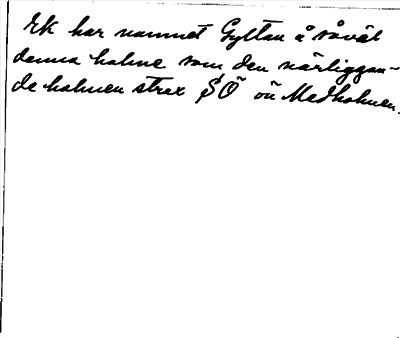 EK har namnet Gyltan å såväl
denna holme som den närliggan-
de holmen strax SÖ om Medholmen.